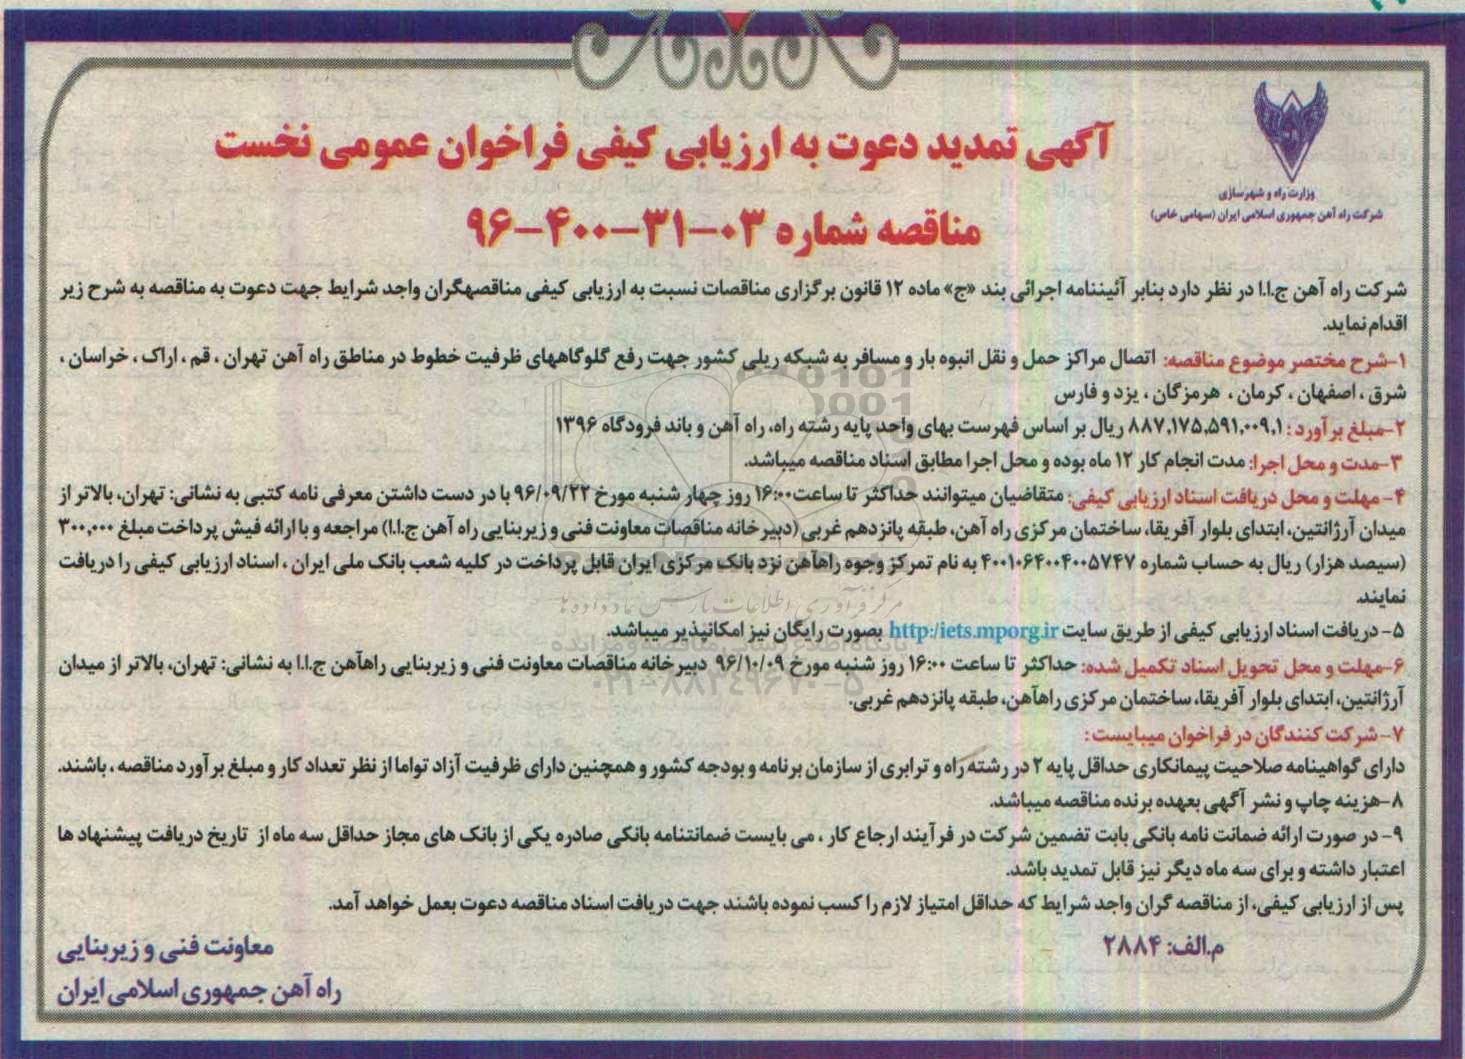 وزارت راه و شهرسازی
شرکت راه آهن جمهوری اسلامی ایران (سهامی خاص)
آگهی تمدید دعوت به ارزیابی کیفی فراخوان عمومی نخست
مناقصه شماره ۰۳-۳۱-۴۰۰-۹۶
شرکت راه آهن ج.ا.ا در نظر دارد بنابر آئیننامه اجرائی بند «ج» ماده ۱۲ قانون برگزاری مناقصات نسبت به ارزیابی کیفی مناقصهگران واجد شرایط جهت دعوت به مناقصه به شرح زیر
اقدام نماید.
۱-شرح مختصر موضوع مناقصه: اتصال مراکز حمل و نقل انبوه بار و مسافر به شبکه ریلی کشور جهت رفع گلوگاههای ظرفیت خطوط در مناطق راه آهن تهران ، قم ، اراک ، خراسان ،
شرق ، اصفهان ، کرمان ، هرمزگان ، یزد و فارس
۲-مبلغ برآورد : ۸۸۷,۱۷۵,۵۹۱,۰۰۹,۱ ریال بر اساس فهرست بهای واحد پایه رشته راه، راه آهن و باند فرودگاه ۱۳۹۶
۳-مدت و محل اجرا: مدت انجام کار ۱۲ ماه بوده و محل اجرا مطابق اسناد مناقصه میباشد.
۴- مهلت و محل دریافت اسناد ارزیابی کیفی: متقاضیان میتوانند حداکثر تا ساعت۱۶:۰۰ روز چهار شنبه مورخ ۹۶/۰۹/۲۲ با در دست داشتن معرفی نامه کتبی به نشانی: تهران، بالاتر از
میدان آرژانتین، ابتدای بلوار آفریقا، ساختمان مرکزی راه آهن، طبقه پانزدهم غربی (دبیرخانه مناقصات معاونت فنی و زیربنایی راه آهن ج.ا.ا) مراجعه و با ارائه فیش پرداخت مبلغ ۳۰۰,۰۰۰
(سیصد هزار) ریال به حساب شماره ۴۰۰۱۰۶۴۰۰۴۰۰۵۷۴۷ به نام تمرکز وجوه راهآهن نزد بانک مرکزی ایران قابل پرداخت در کلیه شعب بانک ملی ایران ، اسناد ارزیابی کیفی را دریافت
نمایند.
۵- دریافت اسناد ارزیابی کیفی از طریق سایت http:/iets.mporg.ir بصورت رایگان نیز امکانپذیر میباشد.
۶-مهلت و محل تحویل اسناد تکمیل شده: حداکثر تا ساعت ۱۶:۰۰ روز شنبه مورخ ۹۶/۱۰/۰۹ دبیرخانه مناقصات معاونت فنی و زیربنایی راهآهن ج.ا.ا به نشانی: تهران، بالاتر از میدان
آرژانتین، ابتدای بلوار آفریقا، ساختمان مرکزی راهآهن، طبقه پانزدهم غربی.
۷- شرکت کنندگان در فراخوان میبایست :
دارای گواهینامه صلاحیت پیمانکاری حداقل پایه ۲ در رشته راه و ترابری از سازمان برنامه و بودجه کشور و همچنین دارای ظرفیت آزاد تواما از نظر تعداد کار و مبلغ برآورد مناقصه ، باشند.
۸-هزینه چاپ و نشر آگهی بعهده برنده مناقصه میباشد.
۹- در صورت ارائه ضمانت نامه بانکی بابت تضمین شرکت در فرآیند ارجاع کار ، می بایست ضمانتنامه بانکی صادره یکی از بانک های مجاز حداقل سه ماه از تاریخ دریافت پیشنهاد ها
اعتبار داشته و برای سه ماه دیگر نیز قابل تمدید باشد.
پس از ارزیابی کیفی، از مناقصه گران واجد شرایط که حداقل امتیاز لازم را کسب نموده باشند جهت دریافت اسناد مناقصه دعوت بعمل خواهد آمد.
م.الف: ۲۸۸۴
معاونت فنی و زیربنایی
راه آهن جمهوری اسلامی ایران
مرکز فرآوری اطلاعات پارس نماد داده ها
۰۲۱-۸۸۳۴۹۶۷۰-۵